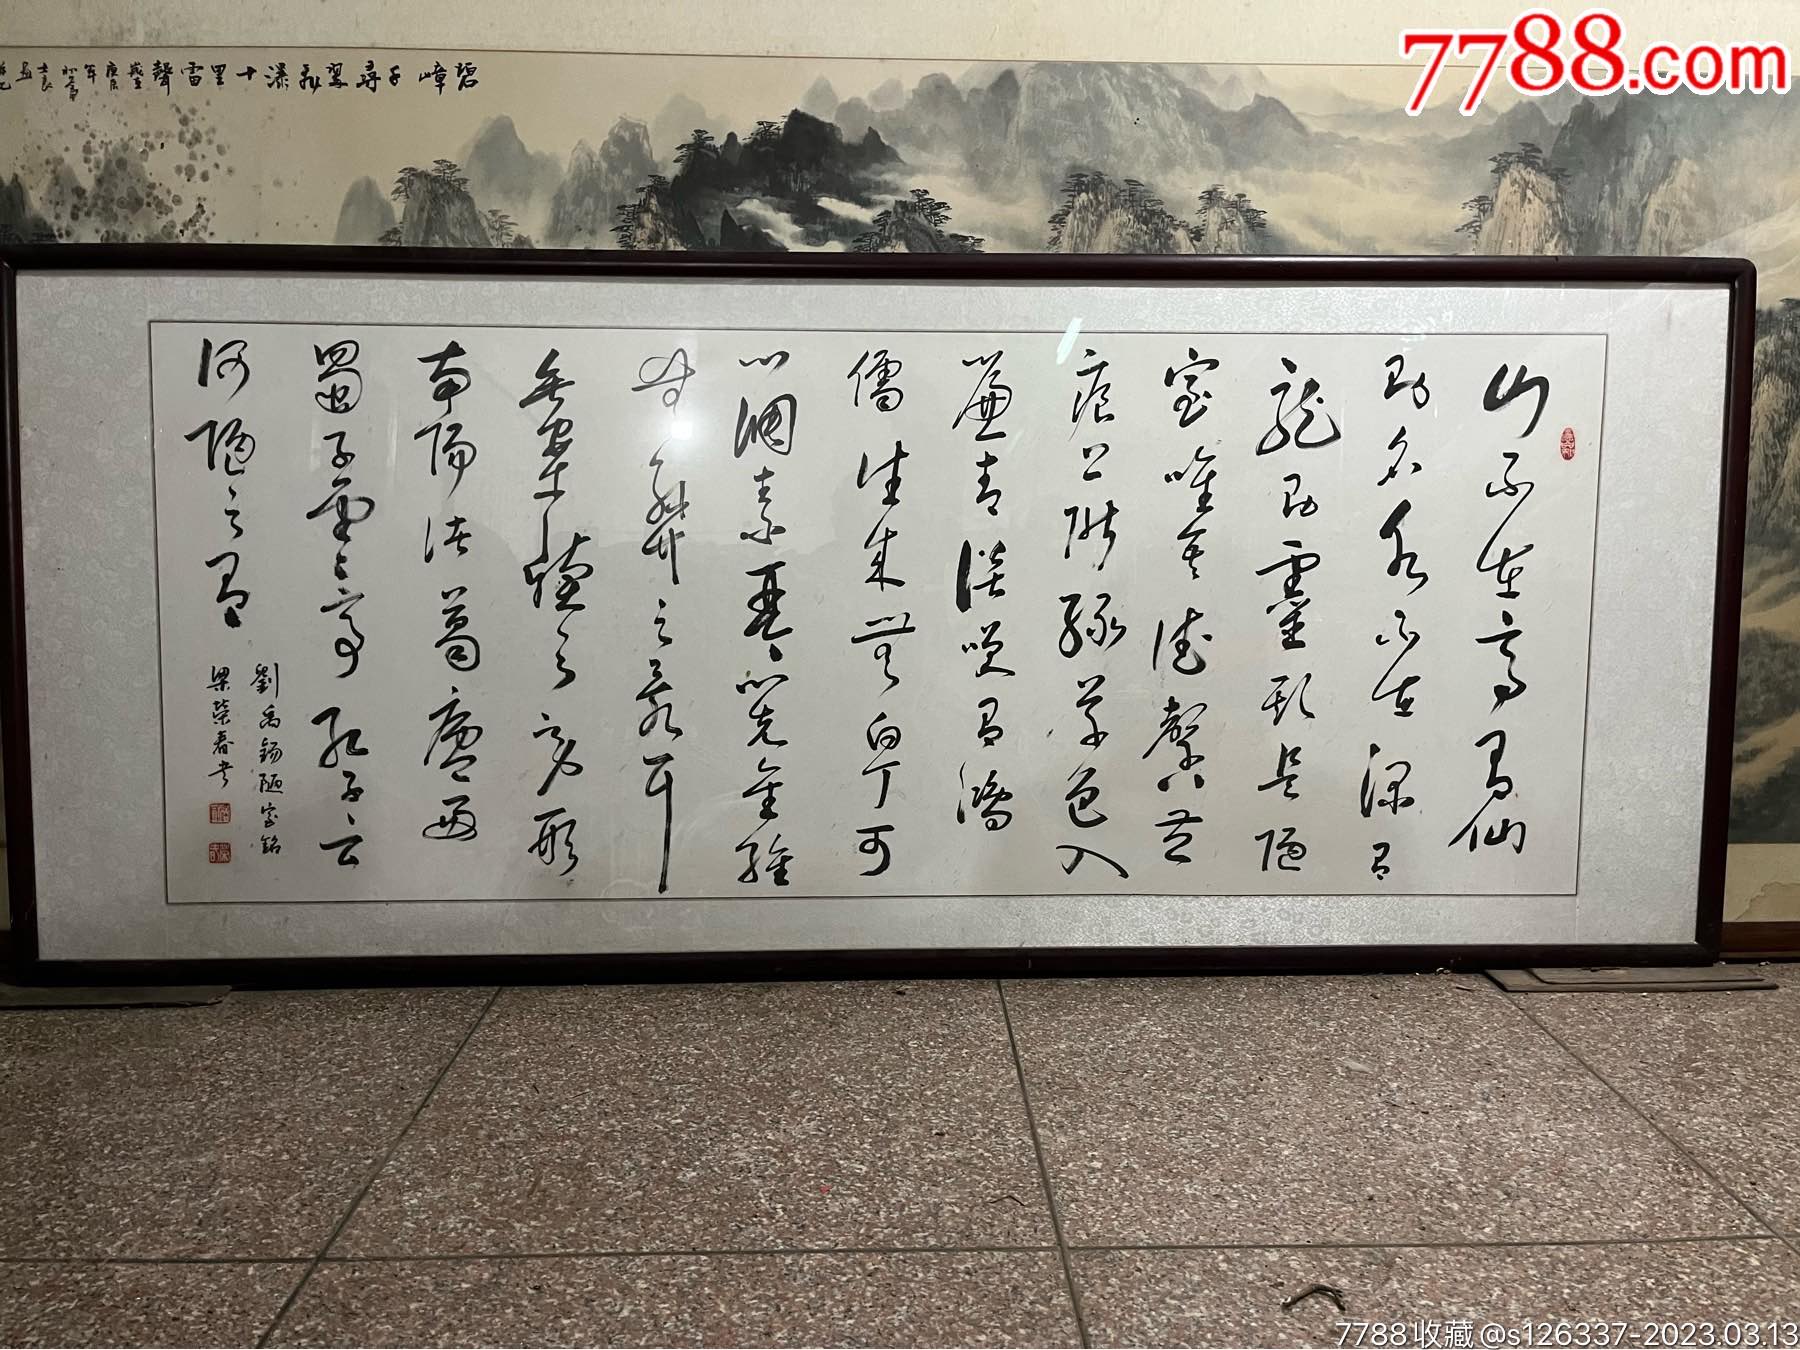 7788.com
碧嶂千尋翠飛瀑十里雷聲
山不在高有仙
則名水不在深有
龍則靈斯是陋
室唯吾德馨苔
痕上階綠草色入
簾青談笑有鴻
儒往來無白丁可
以調素琴閱金經
無絲竹之亂耳
無案牘之勞形
南陽諸葛廬西
蜀子雲亭孔子云
何陋之有
劉禹錫陋室銘
梁榮春書
7788收藏@s126337-2023.03.13